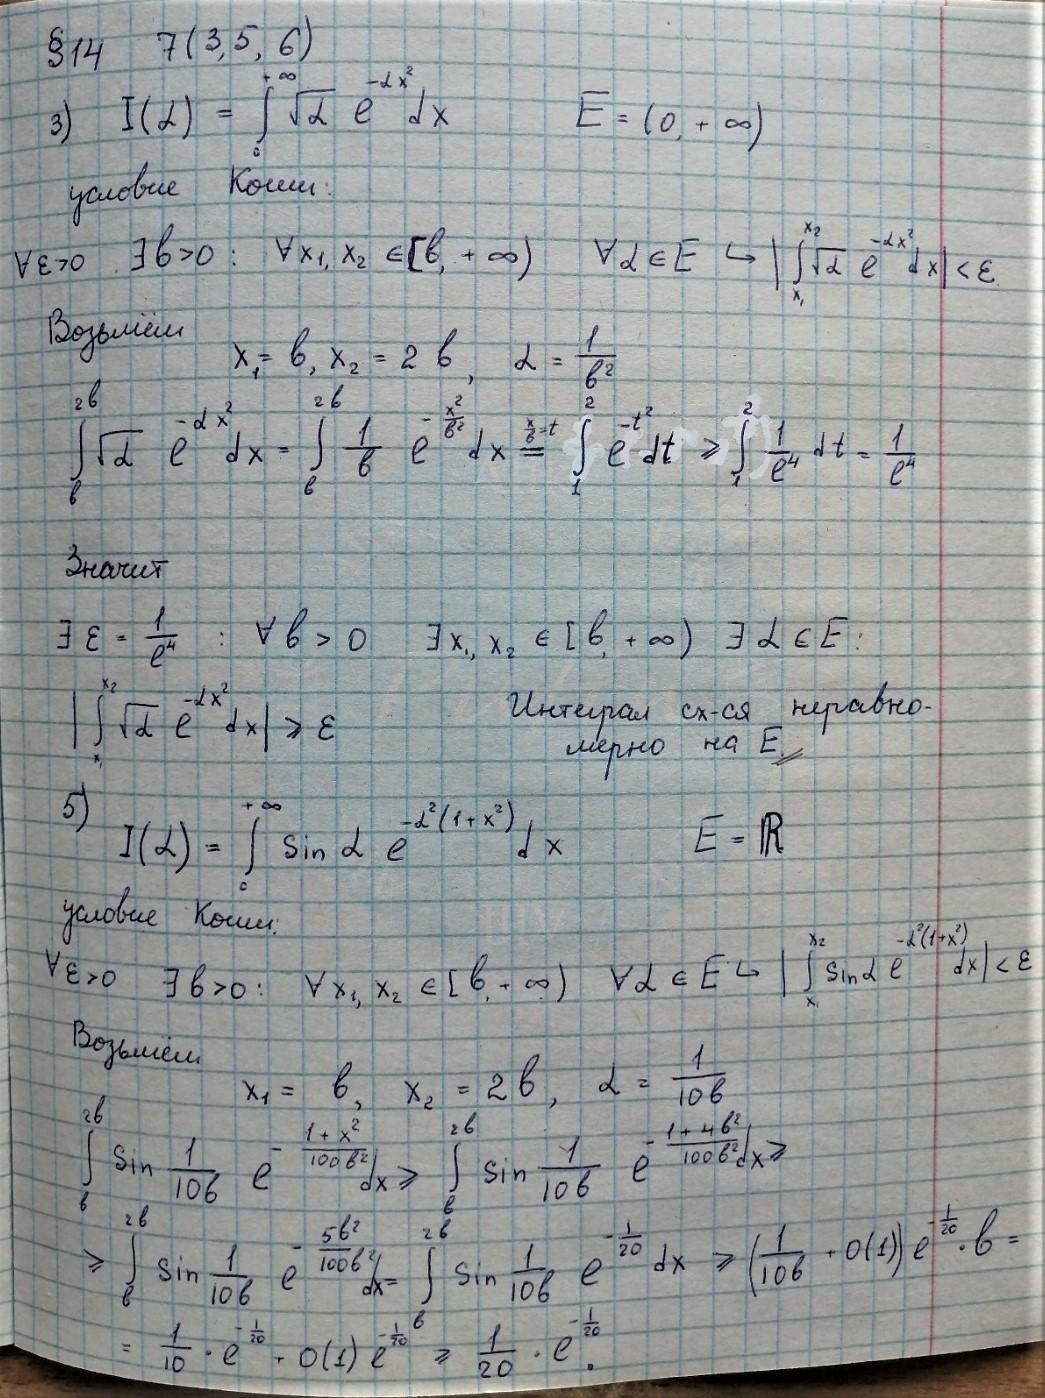 §14 7(3, 5, 6)
3) I(α) = ∫₀^{+∞} √α e^{-αx²} dx E = (0, +∞)
условие Коши:
∀ε>0 ∃b>0 : ∀x₁, x₂ ∈ [b, +∞) ∀α∈E ↪ |∫_{x₁}^{x₂} √α e^{-αx²} dx| < ε
Возьмём
x₁ = b, x₂ = 2b, α = 1/b²
∫_b^{2b} √α e^{-αx²} dx = ∫_b^{2b} 1/b e^{-x²/b²} dx =^{x/b = t} ∫₁² e^{-t²} dt ⩾ ∫₁² 1/e⁴ dt = 1/e⁴
Значит
∃ε = 1/e⁴ : ∀b > 0 ∃x₁, x₂ ∈ [b, +∞) ∃α∈E:
|∫_{x₁}^{x₂} √α e^{-αx²} dx| ⩾ ε Интеграл сх-ся неравно-
мерно на E.
5) I(α) = ∫₀^{+∞} sin α e^{-α²(1+x²)} dx E = ℝ
условие Коши:
∀ε>0 ∃b>0 : ∀x₁, x₂ ∈ [b, +∞) ∀α∈E ↪ |∫_{x₁}^{x₂} sin α e^{-α²(1+x²)} dx| < ε
Возьмём
x₁ = b, x₂ = 2b, α = 1/10b
∫_b^{2b} sin 1/10b e^{-(1+x²)/100b²} dx ⩾ ∫_b^{2b} sin 1/10b e^{-(1+4b²)/100b²} dx ⩾
⩾ ∫_b^{2b} sin 1/10b e^{-5b²/100b²} dx = ∫_b^{2b} sin 1/10b e^{-1/20} dx ⩾ (1/10b + O(1)) e^{-1/20} · b =
= 1/10 · e^{-1/20} + O(1) e^{-1/20} ⩾ 1/20 · e^{-1/20}.